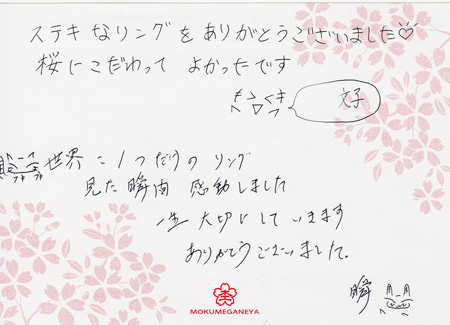 ステキなリングをありがとうございました♡
桜にこだわって よかったです
世界に1つだけのリング
見た瞬間 感動しました
一生 大切にしていきます
ありがとうございました。
MOKUMEGANEYA